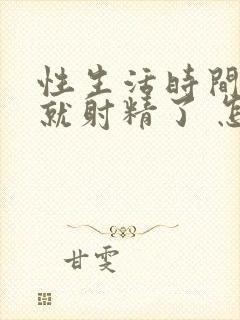 性生活時間
就射精了 怎
甘雯